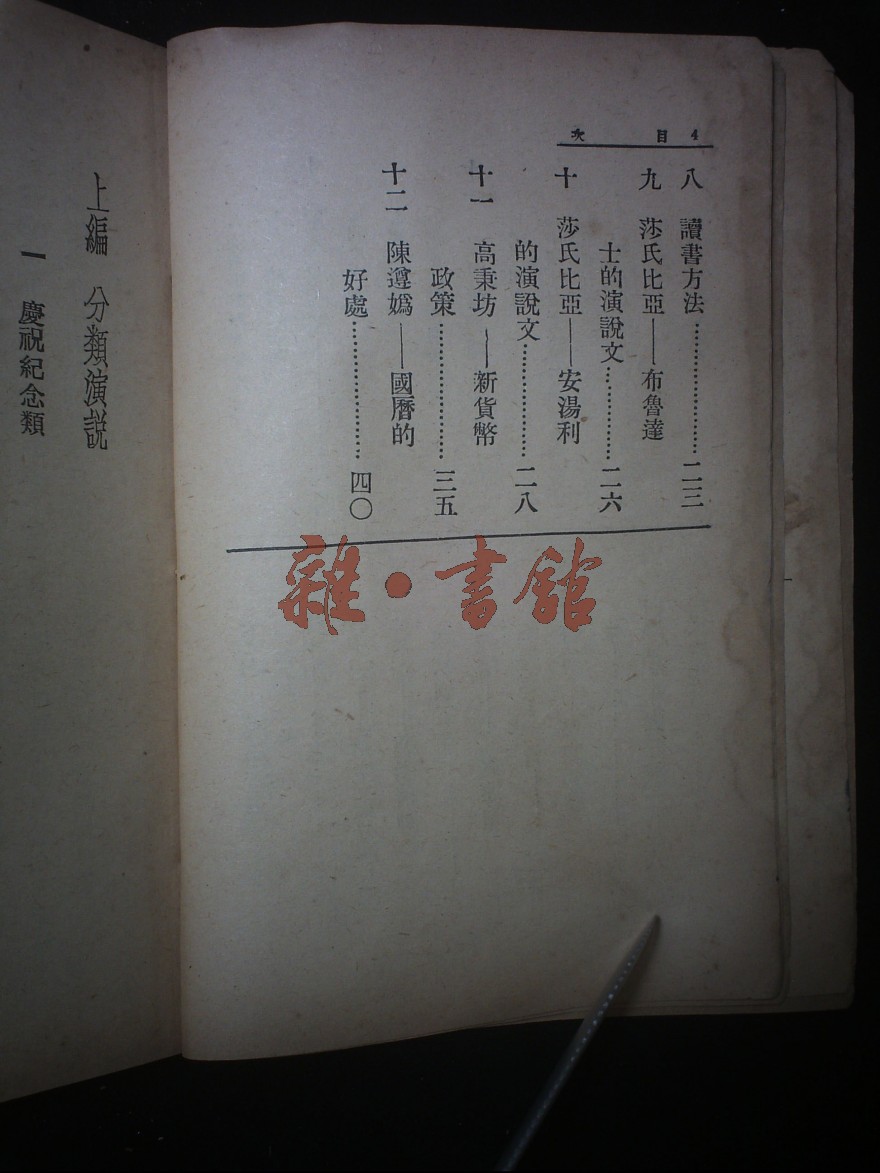 4 目次
八 讀書方法…………………二三
九 莎氏比亞——布魯達
士的演說文……………二六
十 莎氏比亞——安湯利
的演說文………………二八
十一 高秉坊——新貨幣
政策……………………三五
十二 陳遵嬀——國曆的
好處……………………四〇
上編 分類演説
一 慶祝紀念類
雜·書館